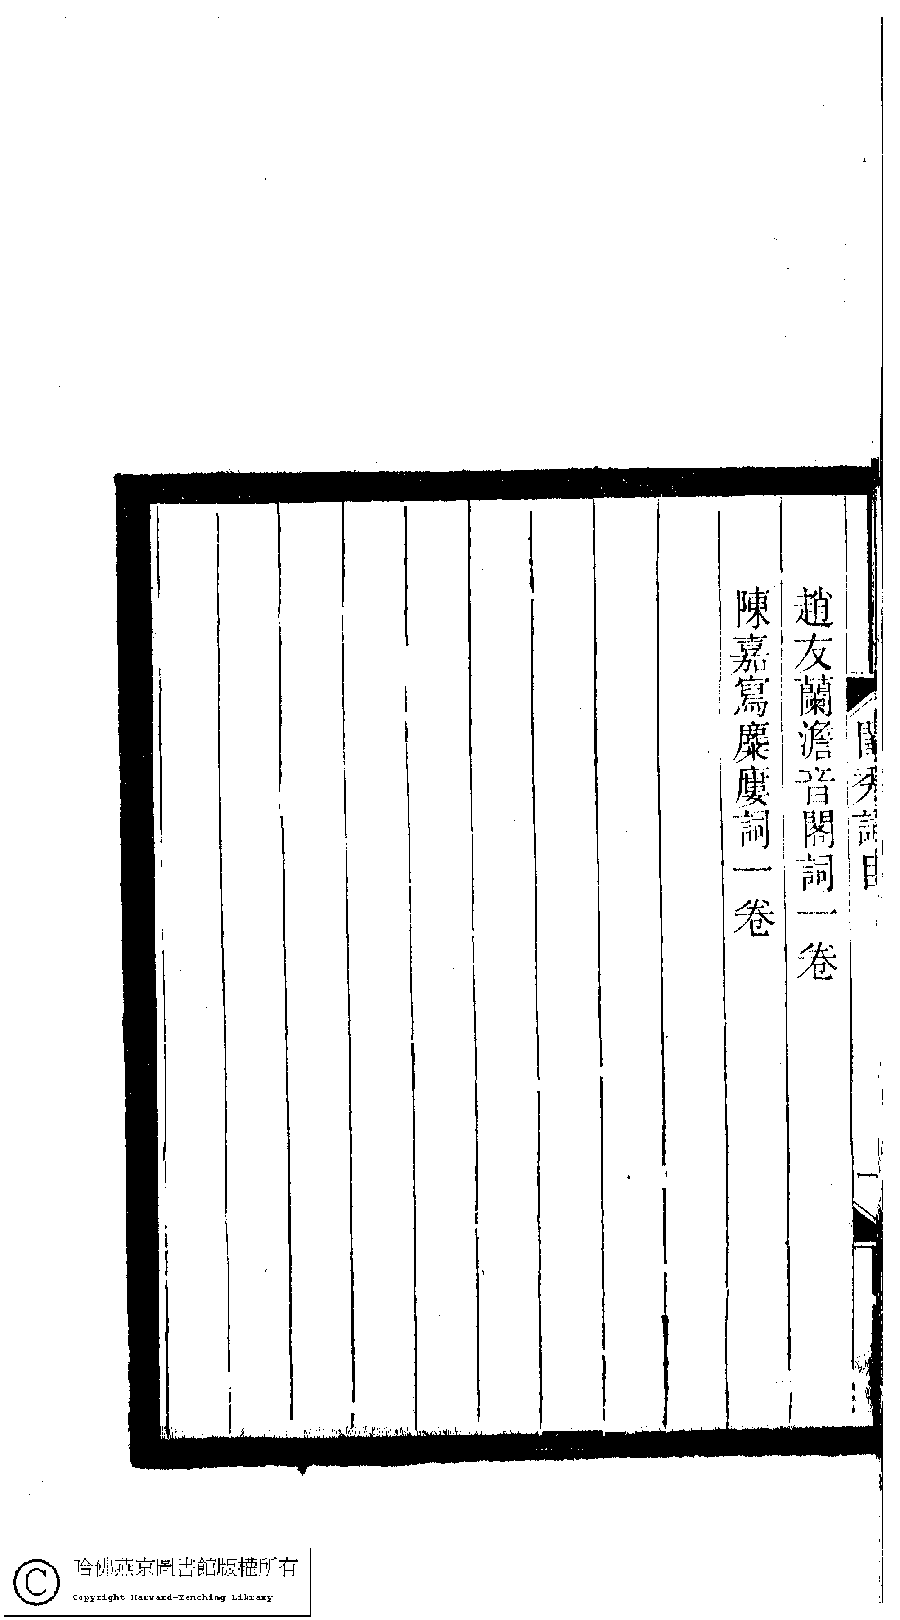 趙友蘭澹音閣詞一卷
陳嘉寫麋廔詞一卷
閨秀詞目
一
哈佛燕京圖書館版權所有
Copyright Harvard-Yenching Library